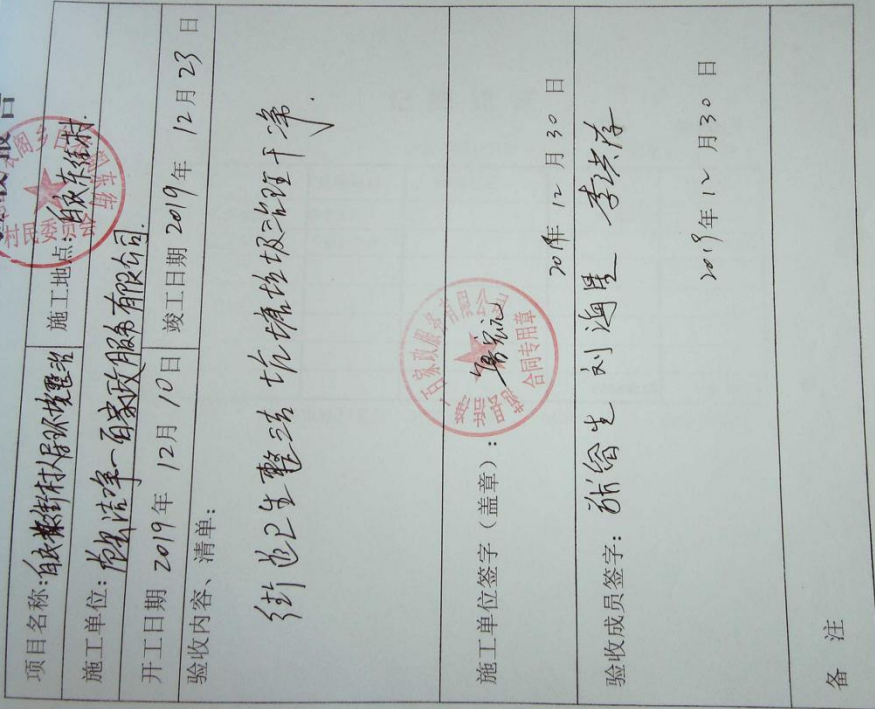 收报告
项目名称:白衣东街村人居环境整治
施工地点:白衣东街村.
施工单位:范县洁净一百家政服务有限公司.
开工日期 2019年 12月 10日
竣工日期 2019年 12月 23日
验收内容、清单:
街道卫生整洁 坑塘垃圾治理干净.
施工单位签字(盖章):
2019年 12月 30日
验收成员签字: 刘海星 李洪存
2019年 12月 30日
备 注
村民委员会
合同专用章